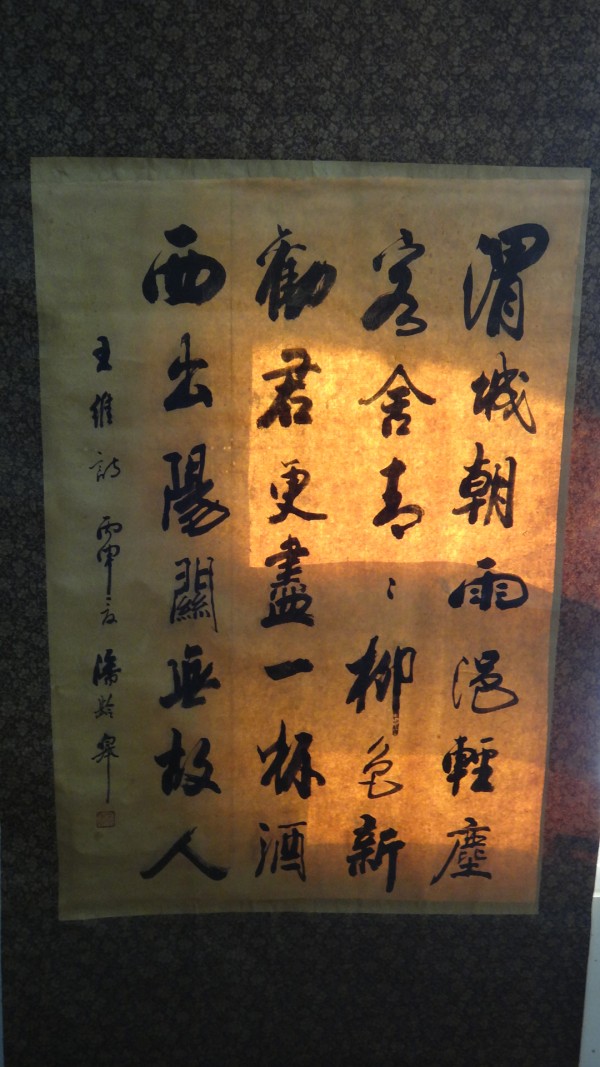 渭城朝雨浥輕塵
客舍青〻柳色新
勸君更盡一杯酒
西出陽關無故人
王維詩 丙申之夏 潘齡皋